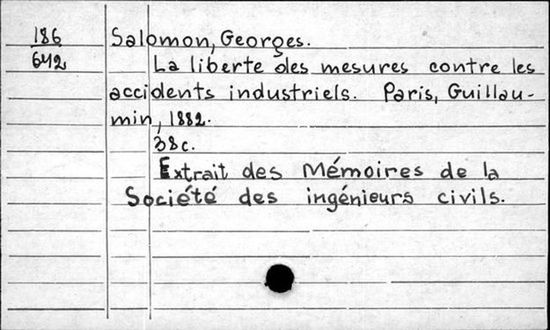 186
642
Salomon, Georges.
La liberte des mesures contre les
accidents industriels. Paris, Guillau-
min, 1882.
38c.
Extrait des Mémoires de la
Société des ingénieurs civils.